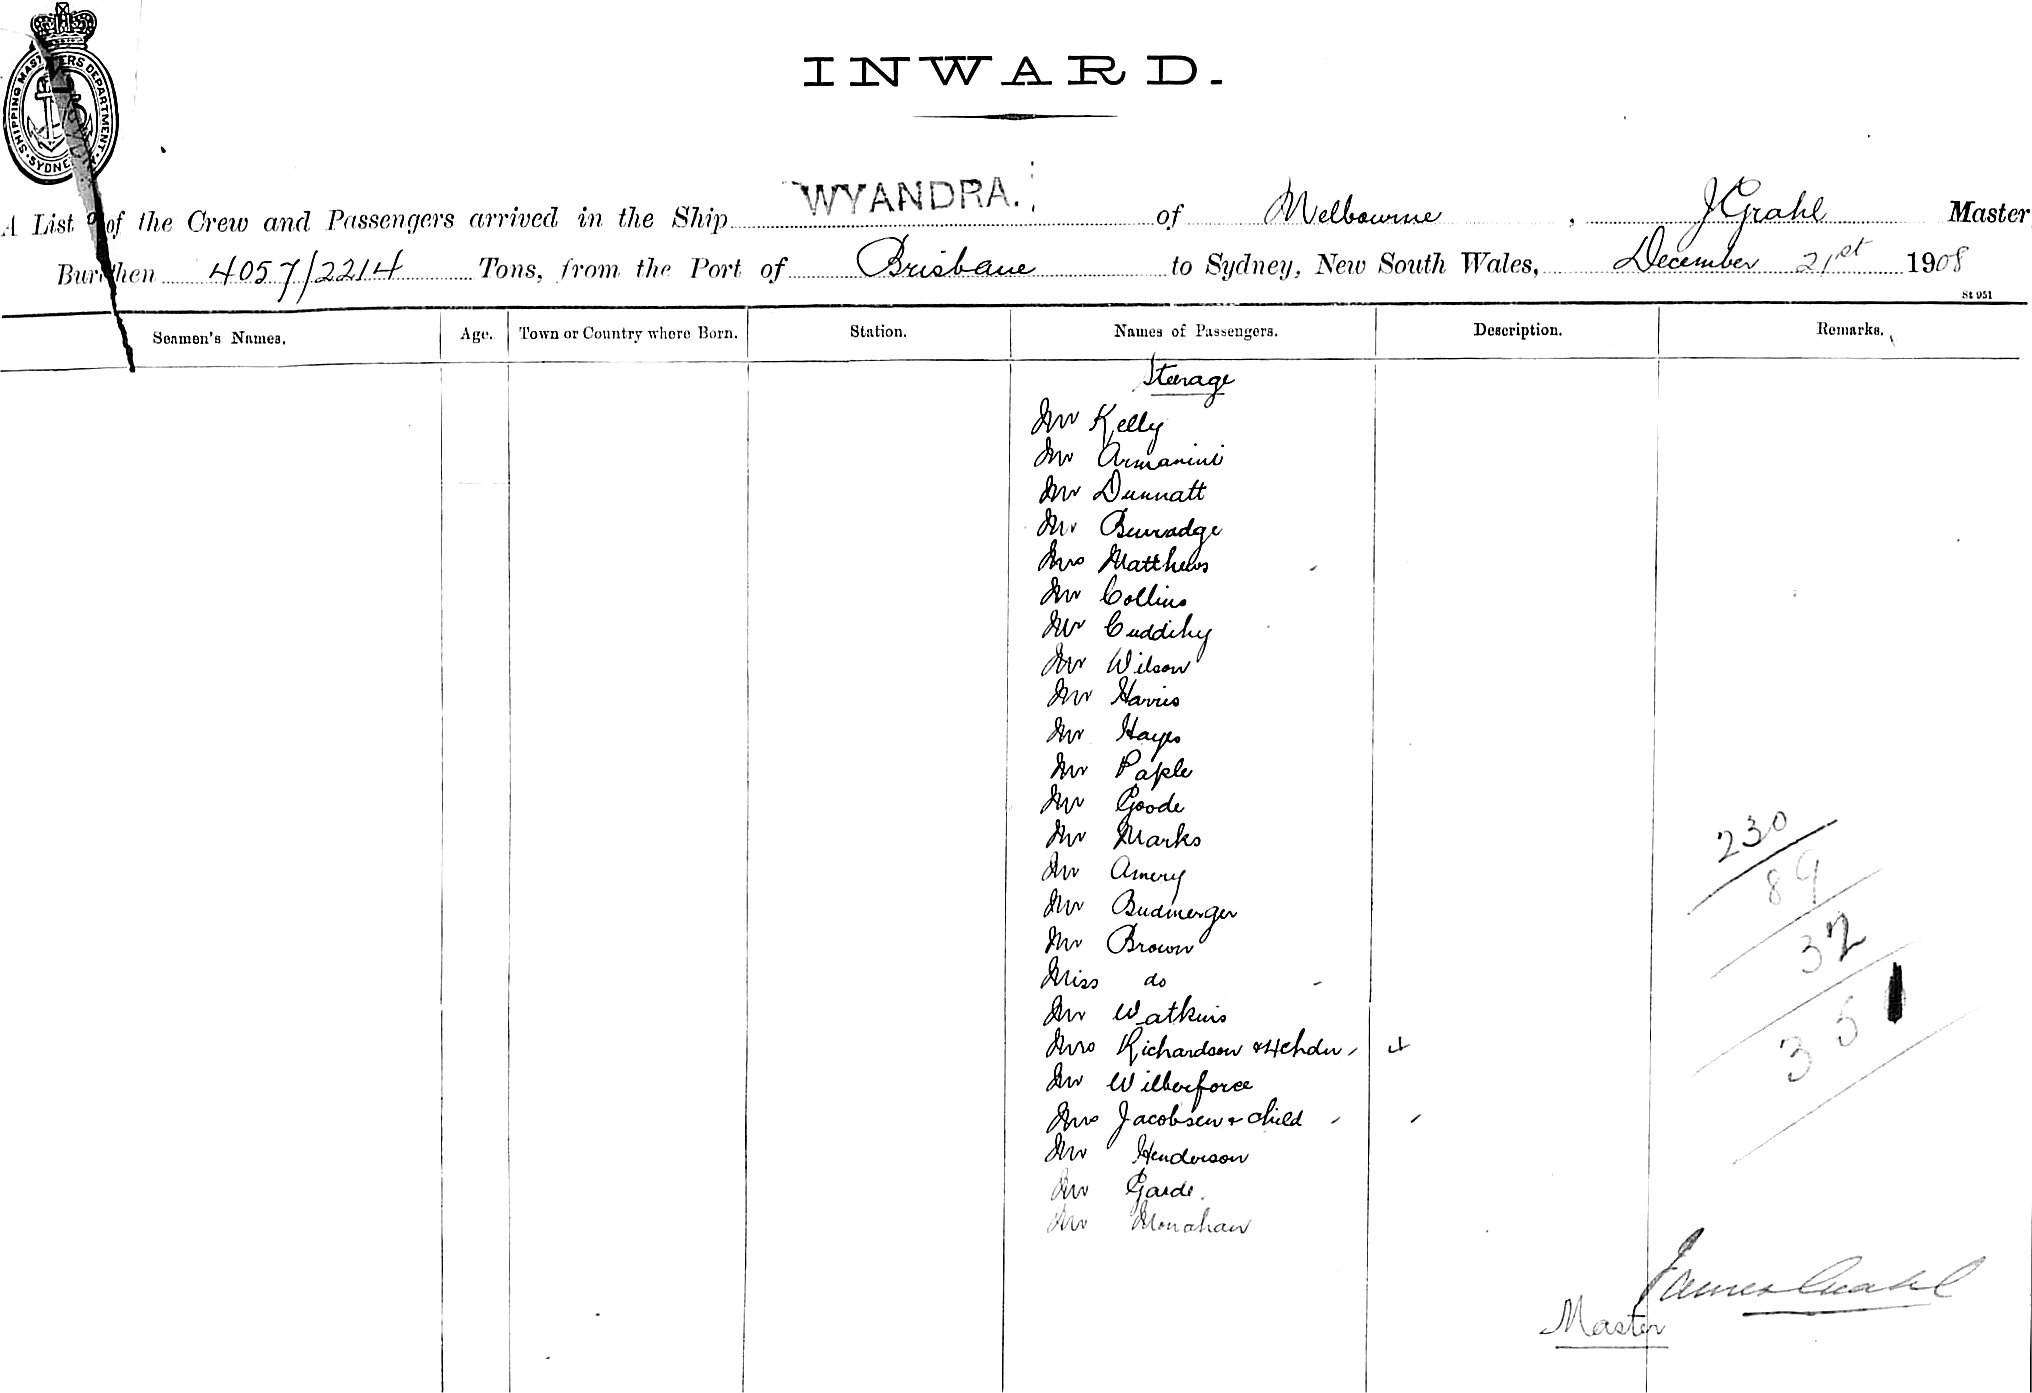 SHIPPING MASTERS DEPARTMENT · SYDNEY ·
INWARD.
A List of the Crew and Passengers arrived in the Ship WYANDRA. of Melbourne, J Grahl Master
Burthen 4057/2214 Tons, from the Port of Brisbane to Sydney, New South Wales, December 21st 1908
St 951
Seamen's Names. Age. Town or Country where Born. Station. Names of Passengers. Description. Remarks.
Steerage
Mr Kelly
Mr Armanini
Mr Dunnatt
Mr Burradge
Mrs Matthews
Mr Collins
Mr Cuddihy
Mr Wilson
Mr Harris
Mr Hayes
Mr Paple
Mr Goode
Mr Marks
Mr Amery
Mr Budmerger
Mr Brown
Miss do
Mr Watkins
Mrs Richardson & 4 chdn 4
Mr Wilberforce
Mrs Jacobsen & child
Mr Henderson
Mr Garde.
Mr Monahan
230
89
32
351
James Grahl
Master